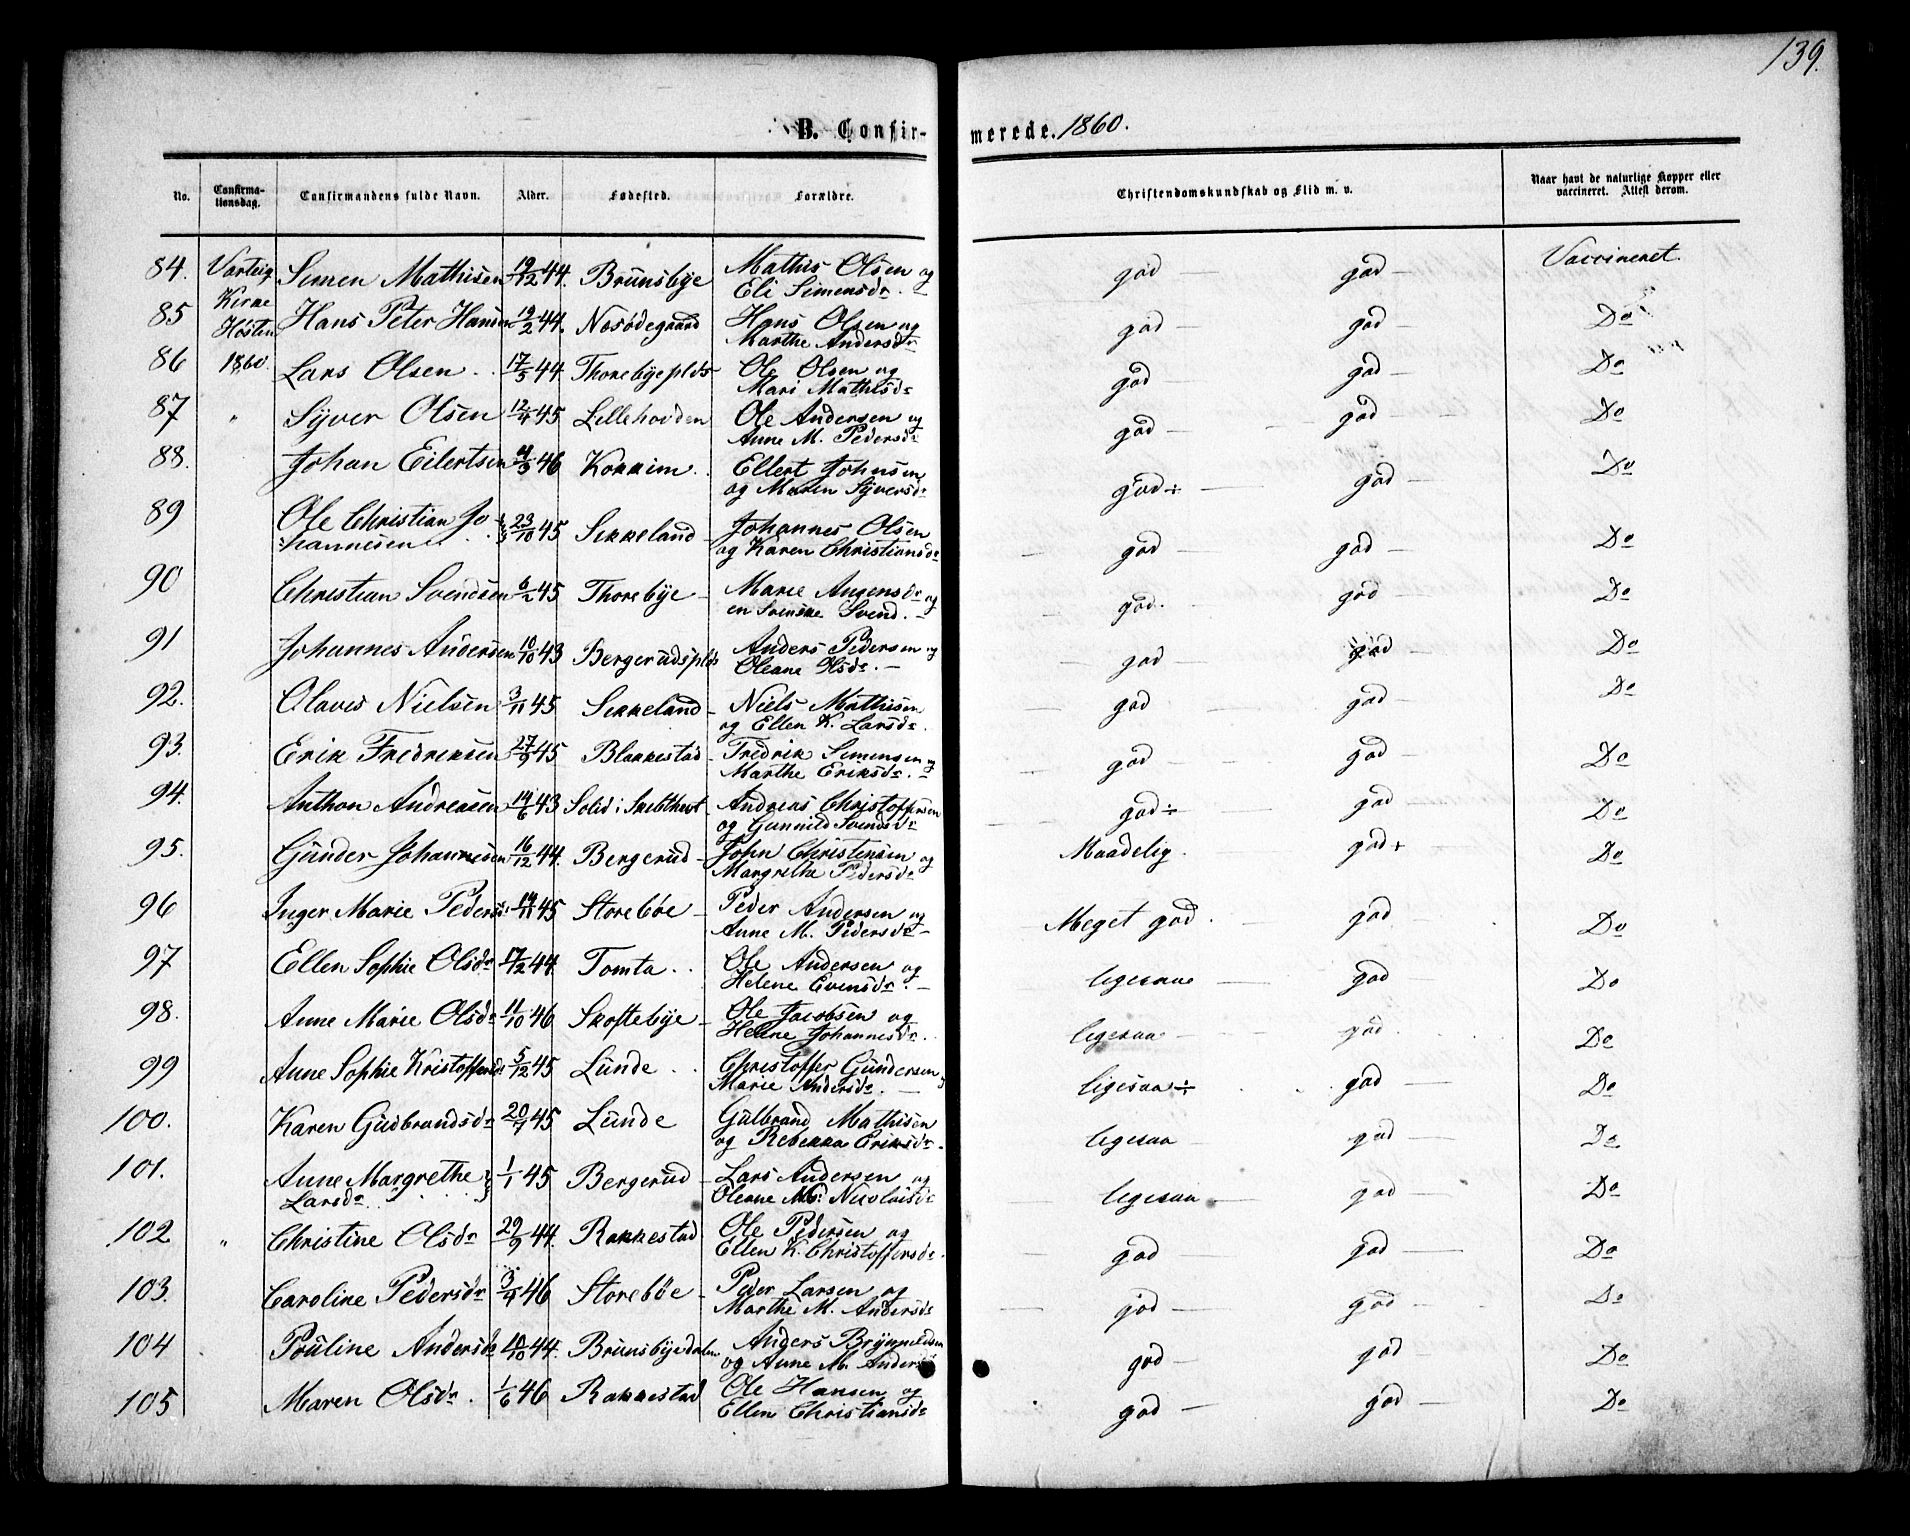 139.
B. Confirmerede. 1860.
No. Confirmationsdag. Confirmandens fulde Navn. Alder. Fødested. Forældre. Christendomskundskab og Flid m. v. Naar havt de naturlige Kopper eller vaccineret. Attest derom.
84. Varteig Simen Mathisen 19/12 44. Brunsbye Mathis Olsen og god — god — Vaccineret.
Kirke Eli Simensdr. —
85 Høsten Hans Peter Hansen 19/2 44. Nesødegaard Hans Olsen og god — god — Do
Marthe Andersdr
86 1860. Lars Olsen 17/5 44 Thorebyeplds Ole Olsen og god — god — Do
Mari Mathisdr
87 " Syver Olsen 12/4 45 Lillehovden Ole Andersen og god — god — Do
Anne M. Pedersdr
88. Johan Eilertsen 46 Kokkim Ellert Johnsen god ÷ — god — Do
og Maren Syversdr
89 Ole Christian Jo- 23/10 45 Sikkeland Johannes Olsen god — god — Do
hannesen og Karen Christiansdr
90 Christian Svendsen 6/2 45 Thorebye Marie Angensdr og god. god — Do
en Svenske Svend. —
91 Johannes Andersen 10/10 43 Bergerudsplds Anders Pedersen og god — god Do
Oleane Olsdr. —
92. Olaves Nielsen 3/11 45 Sikkeland Niels Mathisen god god — Do
og Ellen K. Larsdr.
93. Erik Fredriksen 27/9 45 Blakkestad Fredrik Simensen og god — god — Do
Marthe Eriksdr. —
94. Anthon Andreasen 14/6 43 Solid i Skebthvet Andreas Christoffersen god ÷ god — Do
og Gunnild Svendsdr
95. Gunder Johannesen 16/12 44. Bergerud John Christensen og Maadelig. god + Do
Margrethe Pedersdr
96 Inger Marie Pedersdr 19/11 45 Storebøe Peder Andersen og Meget god. god — Do
Anne M. Pedersdr —
97 Ellen Sophie Olsdr 17/12 44. Tomta Ole Andersen og ligesaa — god — Do
Helene Evensdr. —
98. Anne Marie Olsdr 11/10 46 Skoftebye Ole Jacobsen og ligesaa — god Do
Helene Johannesdr.
99 Anne Sophie Kristoffersdr 5/12 45 Lunde Christoffer Gundersen og ligesaa ÷ god — Do
Marie Andersdr. —
100. Karen Gudbrandsdr 20/7 45 Lunde Gulbrand Mathisen ligesaa — god — Do
og Rebekka Eriksdr.
101. Anne Margrethe 1/1 45 Bergerud Lars Andersen og ligesaa — god — Do
Larsdr Oleane Nicolaisdr
102 " Christine Olsdr 29/9 44. Rakkestad Ole Pedersen og god god — Do
Ellen K. Christoffersdr.
103. Caroline Pedersdr 3/4 46 Storebøe Peder Larsen og god — god — Do
Marthe M. Andersdr
104 Pouline Andersdr 10/10 44. Brunsbyedalen Anders Brynnildsen god — god — Do
og Anne M. Andersdr
105 Maren Olsdr. 1/6 46 Rakkestad Ole Hansen og god — god — Do
Ellen Christiansdr